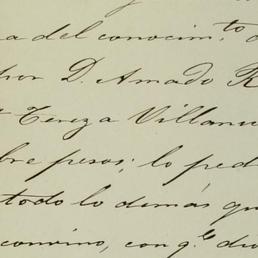 a del conocim.to
por D. Amado R
Tereza Villanu
bre pesos; lo ped
todo lo demás qu
convino, con q.e dio